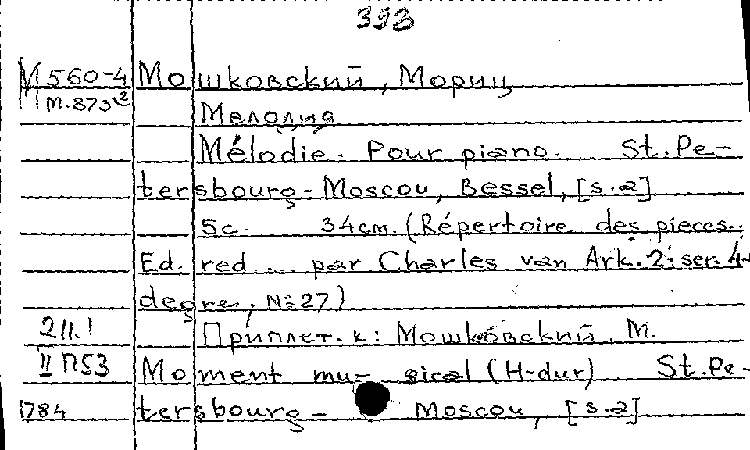 393
М 560-4 Мошковский, Мориц
М.873² Мелодия
Mélodie. Pour piano. St. Pe-
tersbourg-Moscou, Bessel, [s.a]
5с. 34cm. (Répertoire des pieces.
Ed. red ... par Charles van Ark. 2: ser. 4-
degre, №27)
211.1 Приплет. к: Мошковский, М.
II П53 Moment mu- sical (H-dur) St. Pe-
1784 tersbourg- Moscou, [s.a]